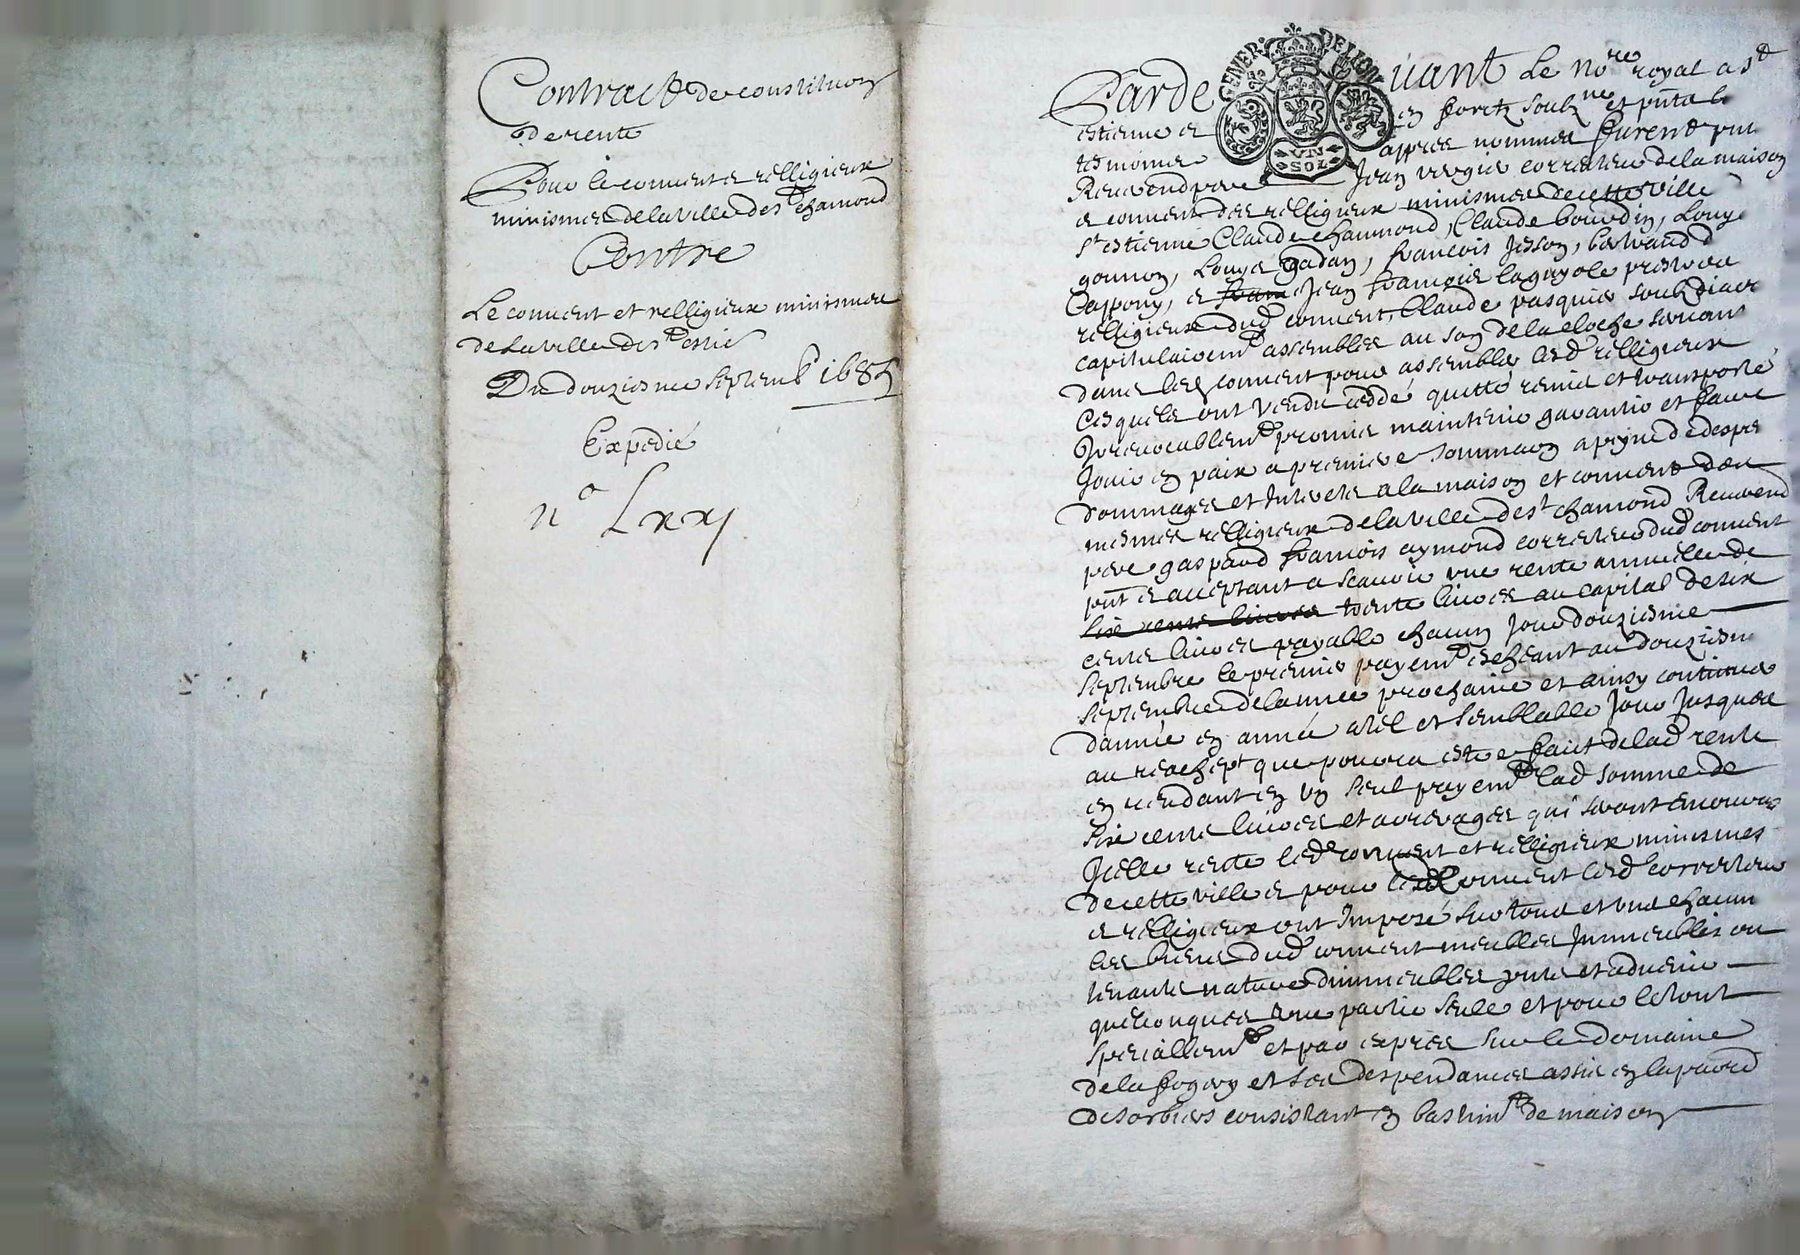 Contract de constituon
de rente
Pour le couvent et relligieux
minismes de la ville de St chamond
Contre
Le couvent et relligieux minismes
de la ville de St estie
Du douziesme septemb 1685
Expedié
no Lxxj
GENER. DE LION
UN SOL
Pardevant Le nore royal a St
estienne en foretz soubzne et pnts les
tesmoins appres nommes furent pnt
Reverend pere Jean vergie correcteur de la maison
et couvent des relligieux minismes de cette ville
St estienne Claude chaumond, Claude bourdin, Louys
gounon, Louys gadan, francois Jesson, bertrand
Cappony, et Jean francois lagayole prestres
relligieux dud couvent, Claude pasquier soubzdiacre
capitulairemt assembles au son de la cloche servant
dans led couvent pour assembler lesd relligieux
Lesquels ont vendu cedde quitte remis et transporte
Irrevocablemt promis maintenir garantir et faire
Jouir en paix a premiere sommaon a peyne de despe
dommages et Interets a la maison et couvent des
mesmes relligieux de la ville de St chamond Reverend
pere gaspard francois aymond correcteur dud couvent
pnt et acceptant a scavoir une rente annuelle de
trente livres au capital de six
cents livres payable chacun Jour douziesme
septembre le premier payemt escheant au douziesme
septembre de lannee prochaine et ainsy continuer
dannée en année a tel et semblable Jour Jusques
au reachept que pourra estre fait de lad rente
en rendant en un seul payemt lad somme de
six cents livres et arrerages qui seront encourus
Icelle rente lesd couvent et relligieux minismes
de cette ville et pour led couvent lesd correcteur
et relligieux ont Imposé sur tous et uns chacuns
les biens dud couvent meubles Immeubles ou
tenants nature dimmeubles pnts et advenir
quelconques une partie seule et pour le tout
speciallemt et par expres sur le domaine
de la fogery et ses despendances assis en la parr
de sorbiers consistant en bastimts de maison